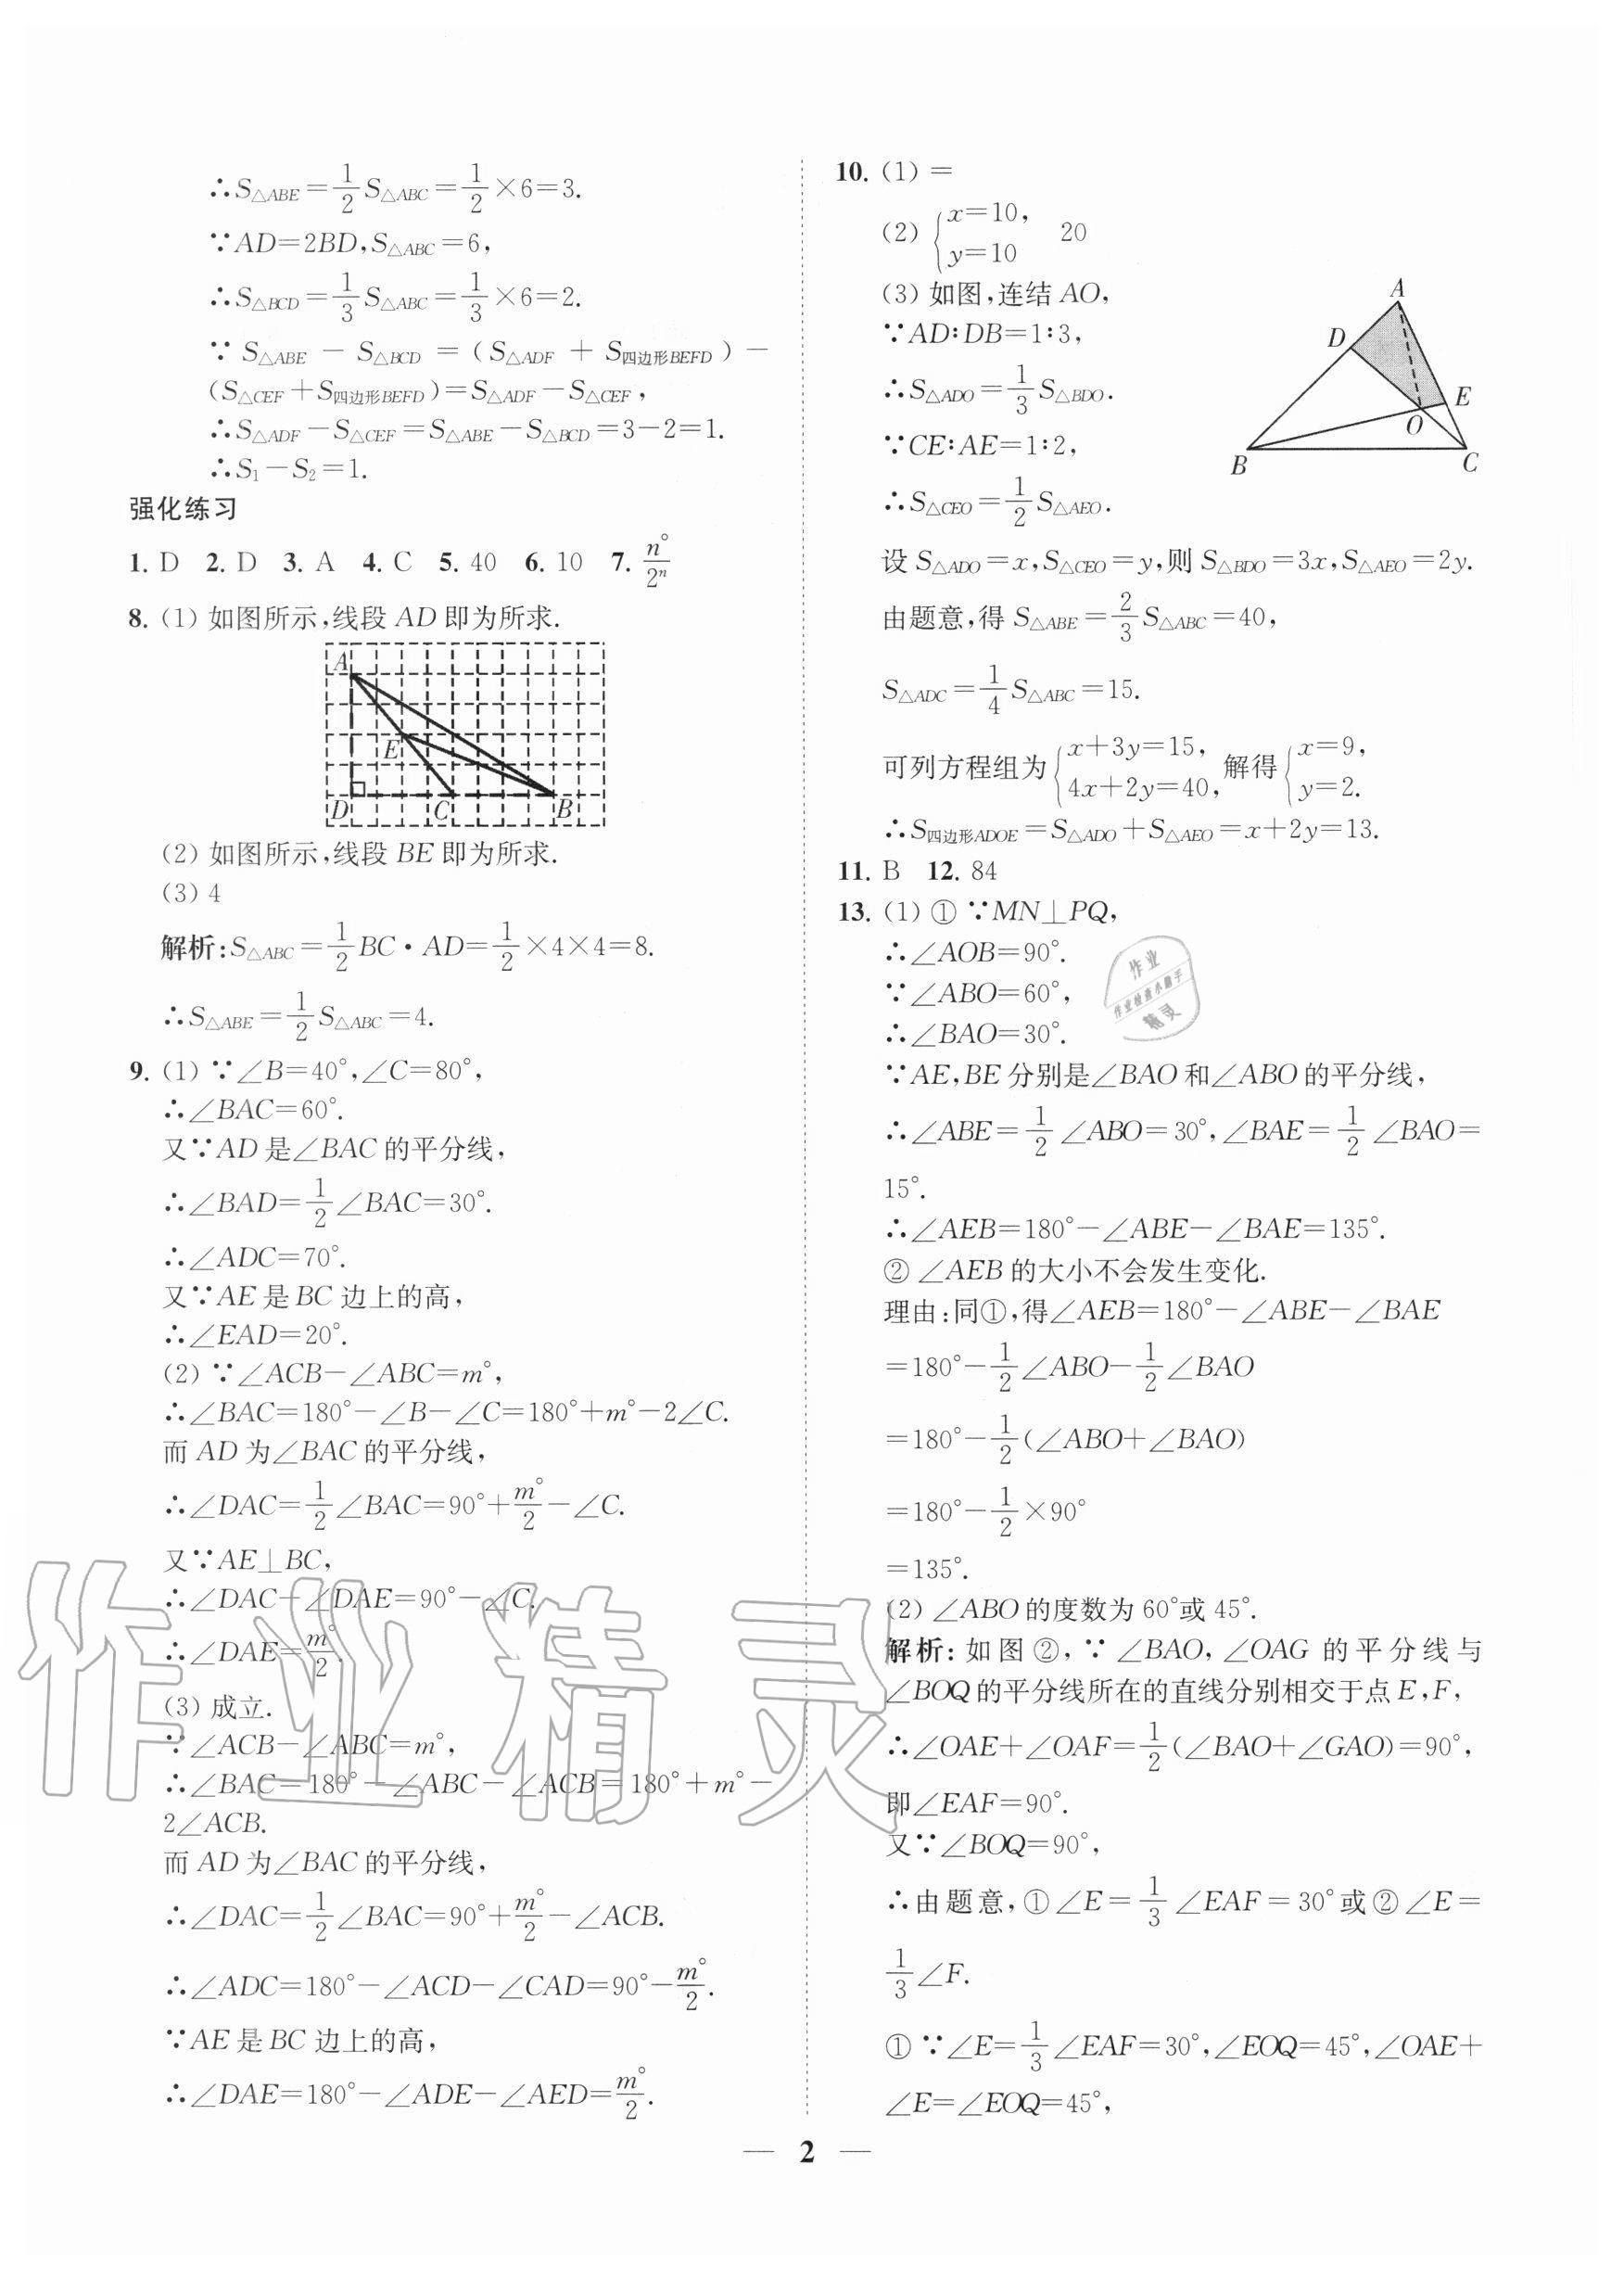 ∴S△ABE=1/2 S△ABC=1/2×6=3.
∵AD=2BD,S△ABC=6,
∴S△BCD=1/3 S△ABC=1/3×6=2.
∵ S△ABE - S△BCD =(S△ADF + S四边形BEFD)-
(S△CEF+S四边形BEFD)=S△ADF-S△CEF,
∴S△ADF-S△CEF=S△ABE-S△BCD=3-2=1.
∴S₁-S₂=1.
强化练习
1. D 2. D 3. A 4. C 5. 40 6. 10 7. n°/2ⁿ
8. (1) 如图所示,线段 AD 即为所求.
A
E
D C B
(2) 如图所示,线段 BE 即为所求.
(3) 4
解析:S△ABC=1/2 BC·AD=1/2×4×4=8.
∴S△ABE=1/2 S△ABC=4.
9. (1) ∵∠B=40°,∠C=80°,
∴∠BAC=60°.
又∵AD 是∠BAC 的平分线,
∴∠BAD=1/2∠BAC=30°.
∴∠ADC=70°.
又∵AE 是 BC 边上的高,
∴∠EAD=20°.
(2) ∵∠ACB-∠ABC=m°,
∴∠BAC=180°-∠B-∠C=180°+m°-2∠C.
而 AD 为∠BAC 的平分线,
∴∠DAC=1/2∠BAC=90°+m°/2-∠C.
又∵AE⊥BC,
∴∠DAC+∠DAE=90°-∠C.
∴∠DAE=m°/2.
(3) 成立.
∵∠ACB-∠ABC=m°,
∴∠BAC=180°-∠ABC-∠ACB=180°+m°-
2∠ACB.
而 AD 为∠BAC 的平分线,
∴∠DAC=1/2∠BAC=90°+m°/2-∠ACB.
∴∠ADC=180°-∠ACD-∠CAD=90°-m°/2.
∵AE 是 BC 边上的高,
∴∠DAE=180°-∠ADE-∠AED=m°/2.
10. (1) =
(2) {x=10, y=10 20
(3) 如图,连结 AO,
∵AD∶DB=1∶3,
∴S△ADO=1/3 S△BDO.
∵CE∶AE=1∶2,
∴S△CEO=1/2 S△AEO.
A
D
E
O
B C
设 S△ADO=x,S△CEO=y,则 S△BDO=3x,S△AEO=2y.
由题意,得 S△ABE=2/3 S△ABC=40,
S△ADC=1/4 S△ABC=15.
可列方程组为{x+3y=15, 4x+2y=40, 解得{x=9, y=2.
∴S四边形ADOE=S△ADO+S△AEO=x+2y=13.
11. B 12. 84
13. (1) ① ∵MN⊥PQ,
∴∠AOB=90°.
∵∠ABO=60°,
∴∠BAO=30°.
∵AE,BE 分别是∠BAO 和∠ABO 的平分线,
∴∠ABE=1/2∠ABO=30°,∠BAE=1/2∠BAO=
15°.
∴∠AEB=180°-∠ABE-∠BAE=135°.
② ∠AEB 的大小不会发生变化.
理由:同①,得∠AEB=180°-∠ABE-∠BAE
=180°-1/2∠ABO-1/2∠BAO
=180°-1/2(∠ABO+∠BAO)
=180°-1/2×90°
=135°.
(2) ∠ABO 的度数为 60°或 45°.
解析:如图②,∵∠BAO,∠OAG 的平分线与
∠BOQ 的平分线所在的直线分别相交于点 E,F,
∴∠OAE+∠OAF=1/2(∠BAO+∠GAO)=90°,
即∠EAF=90°.
又∵∠BOQ=90°,
∴由题意,①∠E=1/3∠EAF=30°或②∠E=
1/3∠F.
① ∵∠E=1/3∠EAF=30°,∠EOQ=45°,∠OAE+
∠E=∠EOQ=45°,
— 2 —
作业
作业检查小助手
精灵
作业精灵